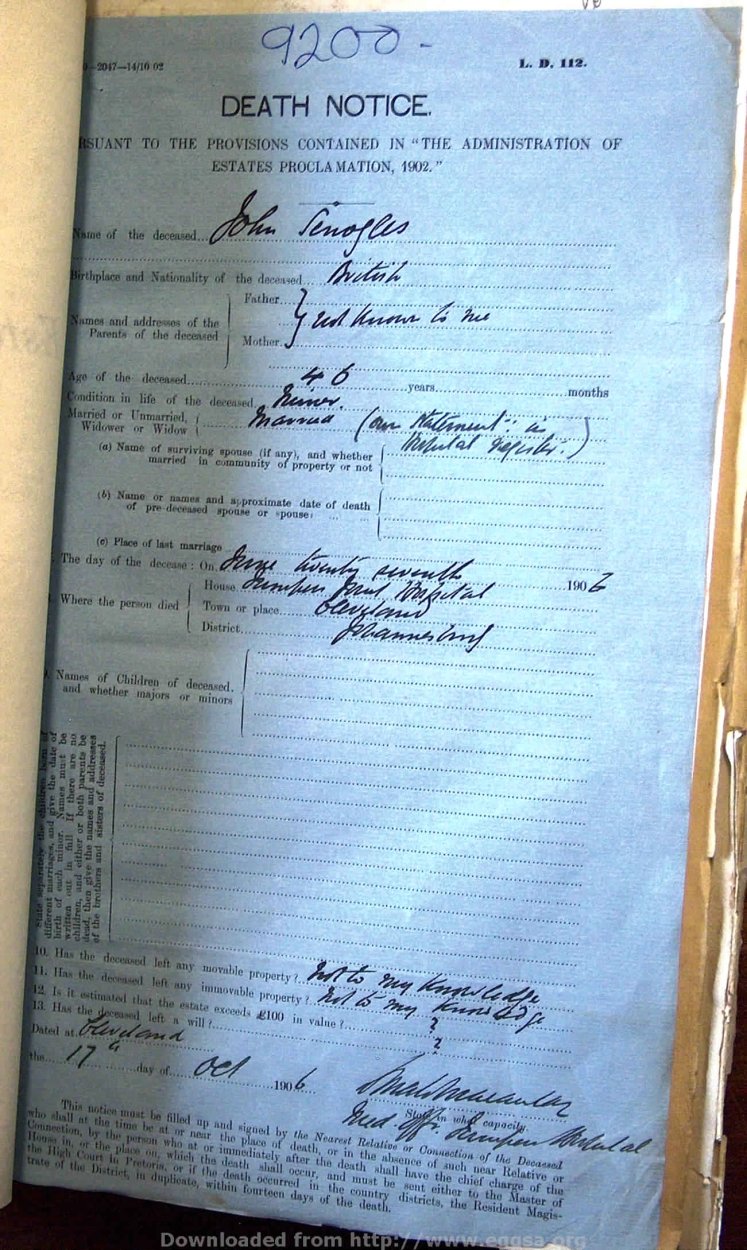 9200 -
-2047—14/10 02 L. D. 112.
DEATH NOTICE.
RSUANT TO THE PROVISIONS CONTAINED IN "THE ADMINISTRATION OF
ESTATES PROCLAMATION, 1902."
Name of the deceased... John Senogles
Birthplace and Nationality of the deceased... British
Names and addresses of the Parents of the deceased
Father...
not known to me
Mother...
Age of the deceased... 46 years... months
Condition in life of the deceased Miner.
Married or Unmarried, Widower or Widow
Married (own statement in
Hospital register.)
(a) Name of surviving spouse (if any), and whether
married in community of property or not
(b) Name or names and approximate date of death
of pre-deceased spouse or spouses ... ...
(c) Place of last marriage
The day of the decease: On June twenty seventh 1906
Where the person died
House Hospital
Town or place... Cleveland
District... Johannesburg
Names of Children of deceased,
and whether majors or minors
State separately the children born of
different marriages, and give the date of
birth of each minor. Names must be
written out in full. If there are no
children, and either or both parents be
dead, then give the names and addresses
of the brothers and sisters of deceased.
10. Has the deceased left any movable property?... Not to my knowledge
11. Has the deceased left any immovable property?... Not to my knowledge
12. Is it estimated that the estate exceeds £100 in value?... ?
13. Has the deceased left a will?... ?
Dated at Cleveland
the... 17th day of... Oct 1906
State in what capacity.
Med Off. Hospital
This notice must be filled up and signed by the Nearest Relative or Connection of the Deceased
who shall at the time be at or near the place of death, or in the absence of such near Relative or
Connection, by the person who at or immediately after the death shall have the chief charge of the
House in, or the place on, which the death shall occur, and must be sent either to the Master of
the High Court in Pretoria, or if the death occurred in the country districts, the Resident Magis-
trate of the District, in duplicate, within fourteen days of the death.
Downloaded from http://www.eggsa.org